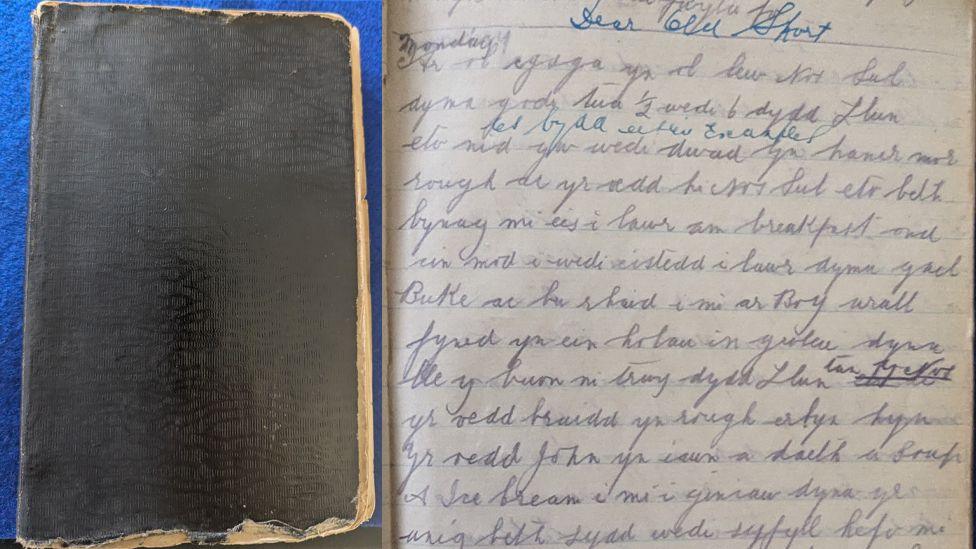 Dear Old Sport
Monday
Ar ol cysga yn ol lew Nos Sul
dyma godi tua ½ wedi 6 dydd Llun
bydd eisiau Examples
eto nid yw wedi dwad yn haner mor
rough ac yr oedd hi Nos Sul eto beth
bynag mi ees i lawr am breakfast ond
cin mod i wedi eistedd i lawr dyma gael
Buke ac bu rhaid i mi ar Boy arall
fyned yn ein holau i'n gwlau dyna
lle y buon ni trwy dydd Llun tan
yr oedd braidd yn rough erbyn hyn
Yr oedd John yn iawn a daeth a Soup
A Ice Cream i mi i giniaw dyna yr
unig beth sydd wedi syfyll hefo mi